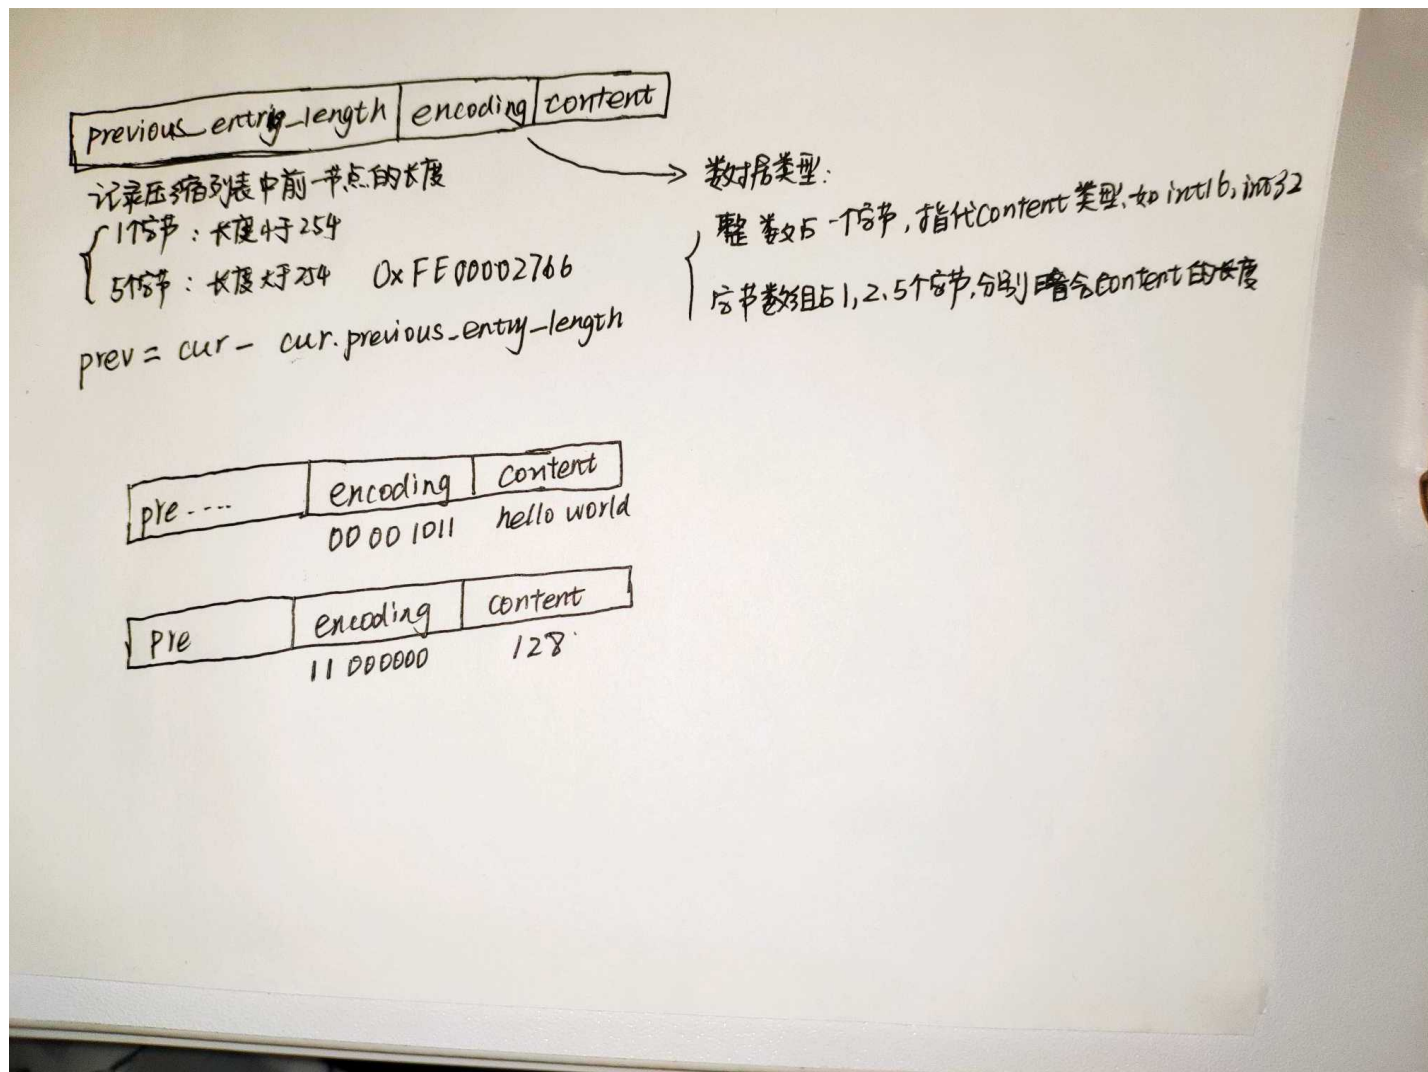 previous_entry_length encoding content
记录压缩列表中前一节点的长度
1个字节：长度小于254
5个字节：长度大于254 0xFE00002766
prev = cur - cur.previous_entry_length
数据类型：
整数占一个字节，指代content类型、如int16，int32
字节数组占1，2、5个字节，分别暗含content的长度
pre.... encoding content
00 00 1011 hello world
pre encoding content
11 000000 128